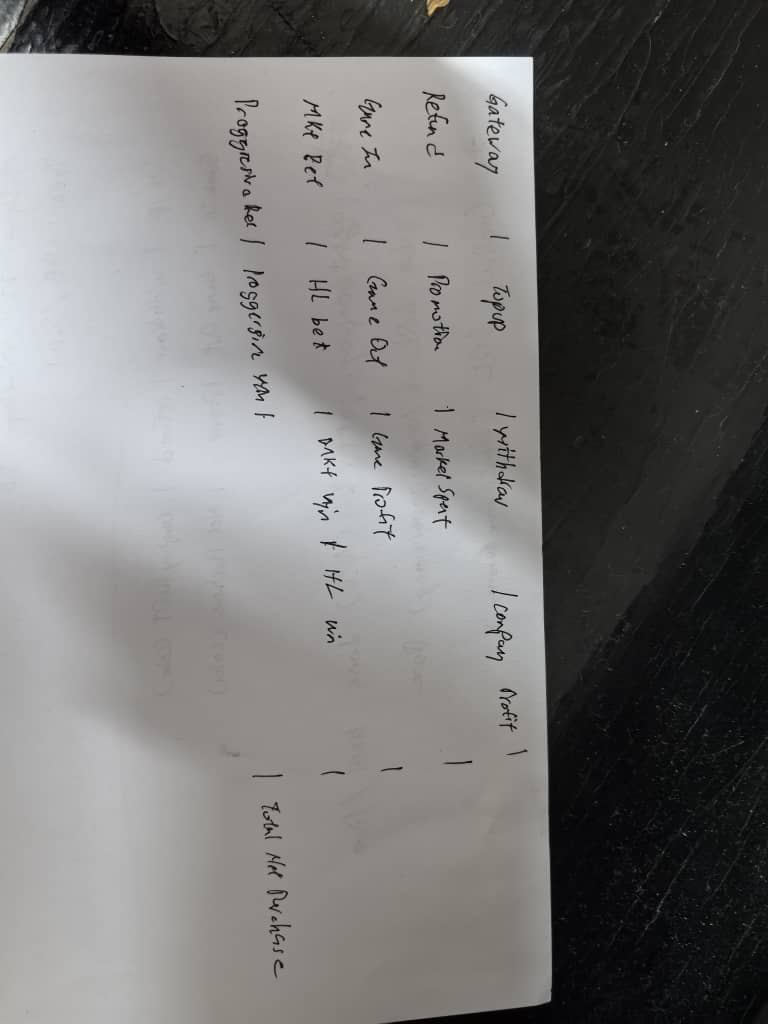 Gateway | Topup | withdraw | Company Profit |
Refund | Promotion | Market Spent |
Game In | Game Out | Game Profit |
MKt Bet | HL bet | MKt Win & HL win |
Proggresive Bet | Proggresive win | | Total Net Purchase